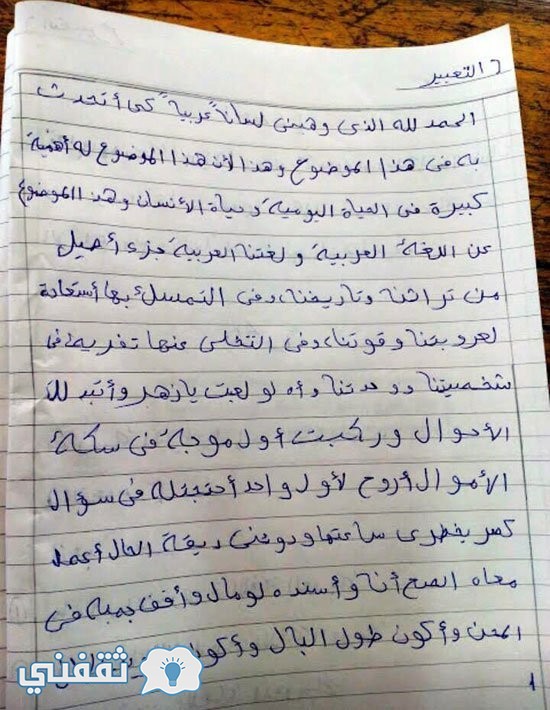 ٦ التعبير
الحمد لله الذى وهبنى لساناً عربياً كى أتحدث
به فى هذا الموضوع وهذا لأن هذا الموضوع له أهمية
كبيرة فى الحياة اليومية وحياة الأنسان وهذا الموضوع
عن اللغة العربية ولغتنا العربية جزء أصيل
من تراثنا وتاريخنا، وفى التمسك بها أستعادة
لعروبتنا وقوتنا، وفى التخلى عنها تفريط فى
شخصيتنا ووحدتنا وأه لو لعبت يا زهر وأتبدلت
الأحوال وركبت أول موجة فى سكة
الأموال أروح لأول واحد أحتجتله فى سؤال
كسر بخطرى ساعتها ودوقنى ضيقة الحال أعمل
معاه الصح أنا وأسنده لو مال وأقف جمبه فى
المحن وأكون طول البال وأكون
ثقفني
١